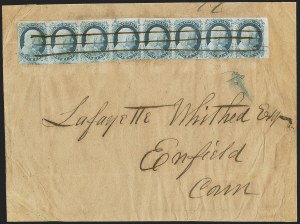 Lafayette Whitred Esq
Enfield
Conn